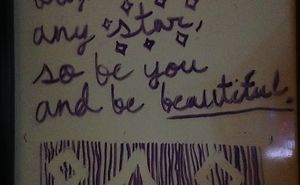 any star,
so be you
and be beautiful.